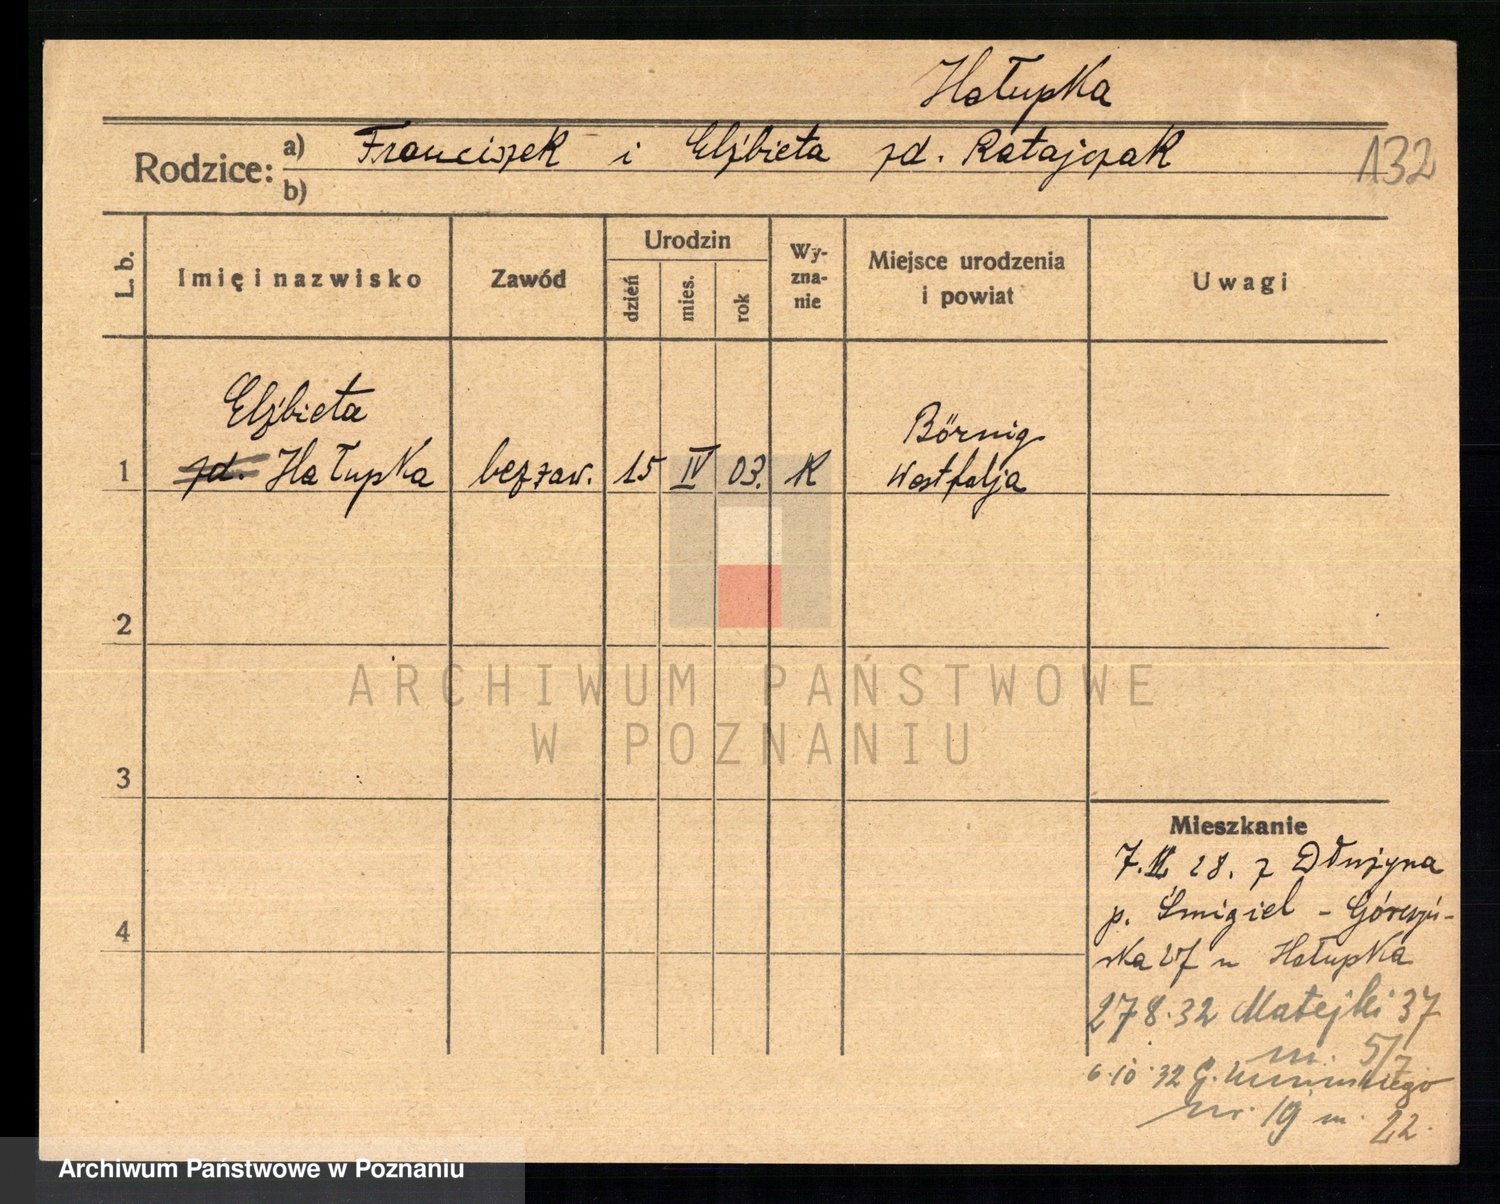 Hałupka
Rodzice: a) Franciszek i Elżbieta zd. Ratajczak
b)
132
L. b.
Imię i nazwisko
Zawód
Urodzin
dzień
mies.
rok
Wy-
zna-
nie
Miejsce urodzenia
i powiat
Uwagi
1
Elżbieta
zd. Hałupka
bez zaw.
15
IV
03.
K
Börnig
Westfalja
2
3
4
ARCHIWUM PAŃSTWOWE
W POZNANIU
Mieszkanie
28. z Dłużyna
p. Śmigiel - Górczyń-
ska 27 u Hałupka
27 8. 32 Matejki 37
m. 5/7
6. 10. 32 G.
nr. 19 m. 22.
Archiwum Państwowe w Poznaniu